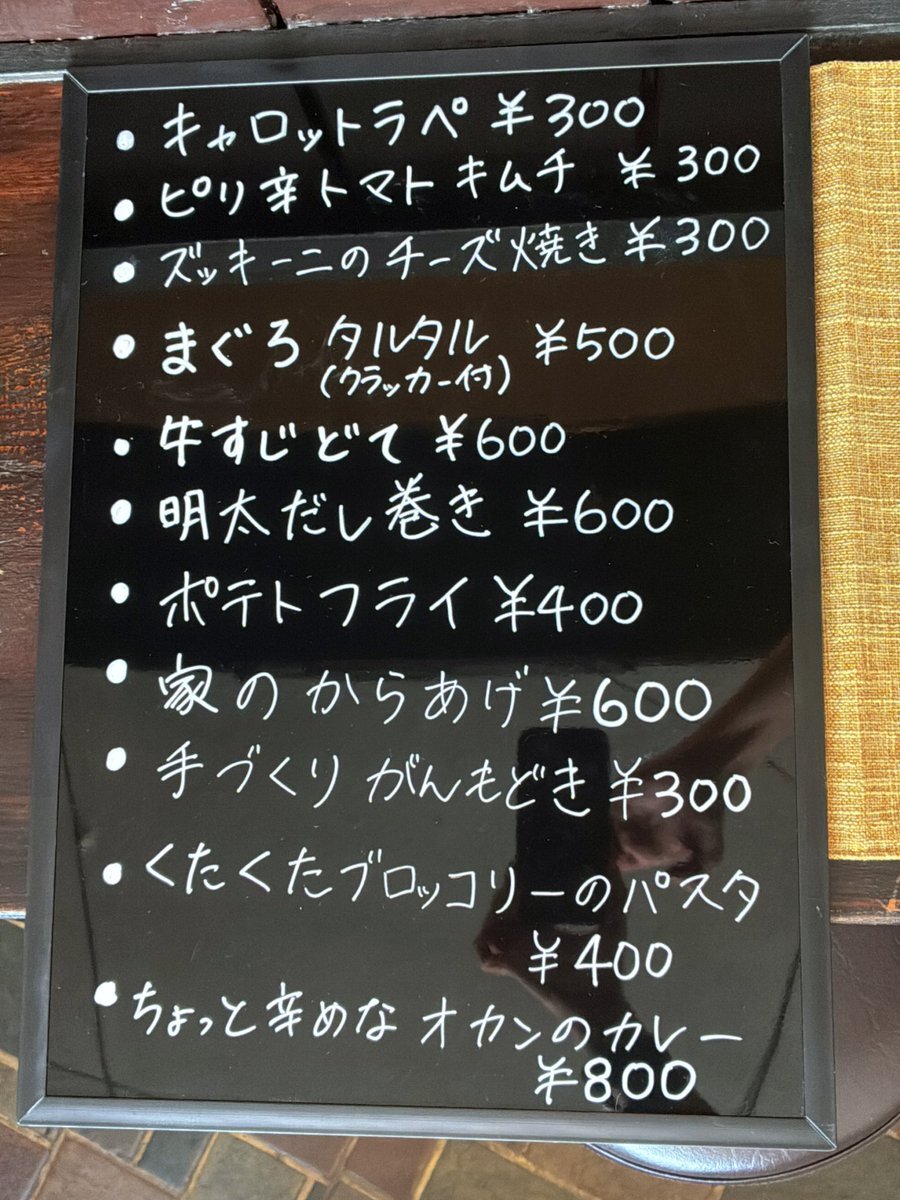 • キャロットラペ ¥300
• ピリ辛トマトキムチ ¥300
• ズッキーニのチーズ焼き ¥300
• まぐろ タルタル ¥500
(クラッカー付)
• 牛すじどて ¥600
• 明太だし巻き ¥600
• ポテトフライ ¥400
• 家のからあげ ¥600
• 手づくりがんもどき ¥300
• くたくたブロッコリーのパスタ
¥400
• ちょっと辛めなオカンのカレー
¥800